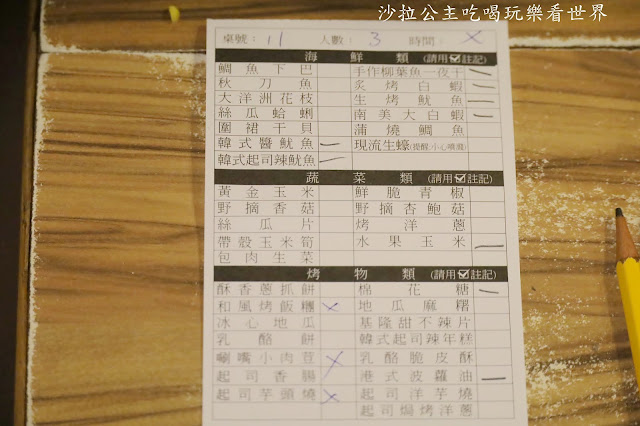 沙拉公主吃喝玩樂看世界
桌號：11 人數：3 時間：X
海鮮類 (請用☑註記)
鯛魚下巴 手作柳葉魚一夜干 —
秋刀魚 炙烤白蝦 —
大洋洲花枝 生烤魷魚 —
絲瓜蛤蜊 南美大白蝦 —
圍裙干貝 蒲燒鯛魚
韓式醬魷魚 — 現流生蠔(提醒:小心噴濺)
韓式起司辣魷魚 —
蔬菜類 (請用☑註記)
黃金玉米 鮮脆青椒
野摘香菇 野摘杏鮑菇
絲瓜片 烤洋蔥
帶殼玉米筍 水果玉米 —
包肉生菜
烤物類 (請用☑註記)
酥香蔥抓餅 棉花糖 —
和風烤飯糰 X 地瓜麻糬
冰心地瓜 基隆甜不辣片
乳酪餅 韓式起司辣年糕
唰嘴小肉荳 X 乳酪脆皮酥
起司香腸 港式波蘿油 —
起司芋頭燒 X 起司洋芋燒
起司焗烤洋蔥